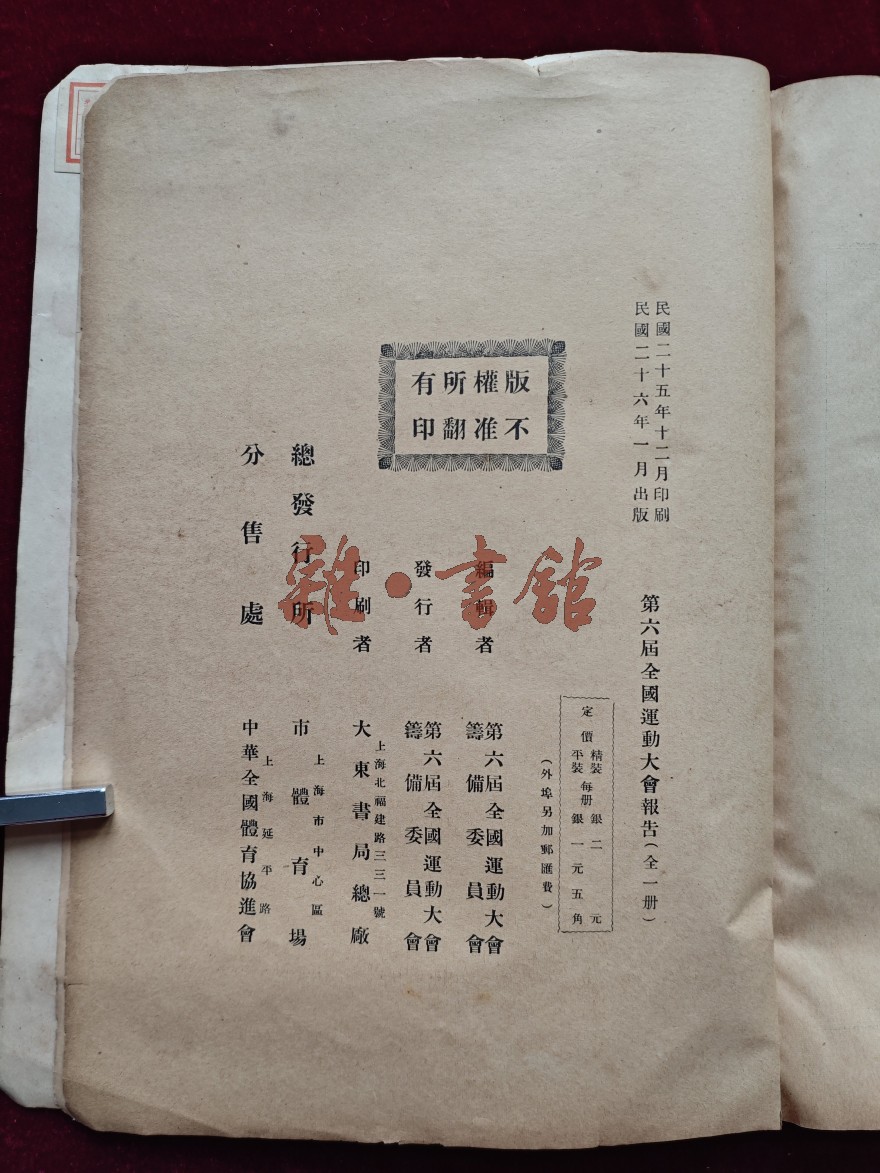 民國二十五年十二月印刷
民國二十六年一月出版
第六屆全國運動大會報告(全一册)
定價
精裝
平裝
每册
銀二元
銀一元五角
(外埠另加郵匯費)
版權所有
不准翻印
編輯者
第六屆全國運動大會
籌備委員會
發行者
第六屆全國運動大會
籌備委員會
印刷者
上海北福建路三三一號
大東書局總廠
總發行所
上海市中心區
市體育場
分售處
上海延平路
中華全國體育協進會
雜·書館